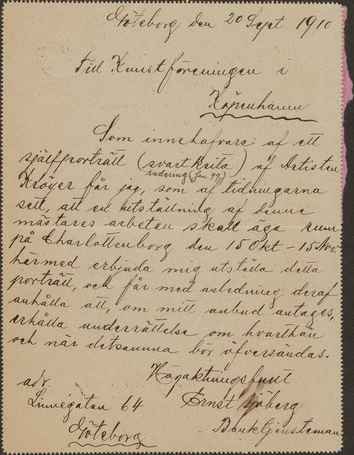 Göteborg den 20 Sept 1910
Till Kunstföreningen i
Köpenhamn
Som innehafvare af ett
själfporträtt (svartkrita) af Artisten
Kröyer får jag, som af tidningarna
sett, att en utställning af denne
mästares arbeten skall äga rum
på Charlottenborg den 15 Okt - 15 Nov
härmed erbjuda mig utställa detta
porträtt, och får med anledning deraf
anhålla att, om mitt anbud antages,
erhålla underrättelse om hvarthän
och när detsamma bör öfversändas.
Högaktningsfullt
Ernst Sjöberg
Banktjensteman
adr
Linnégatan 64
Göteborg